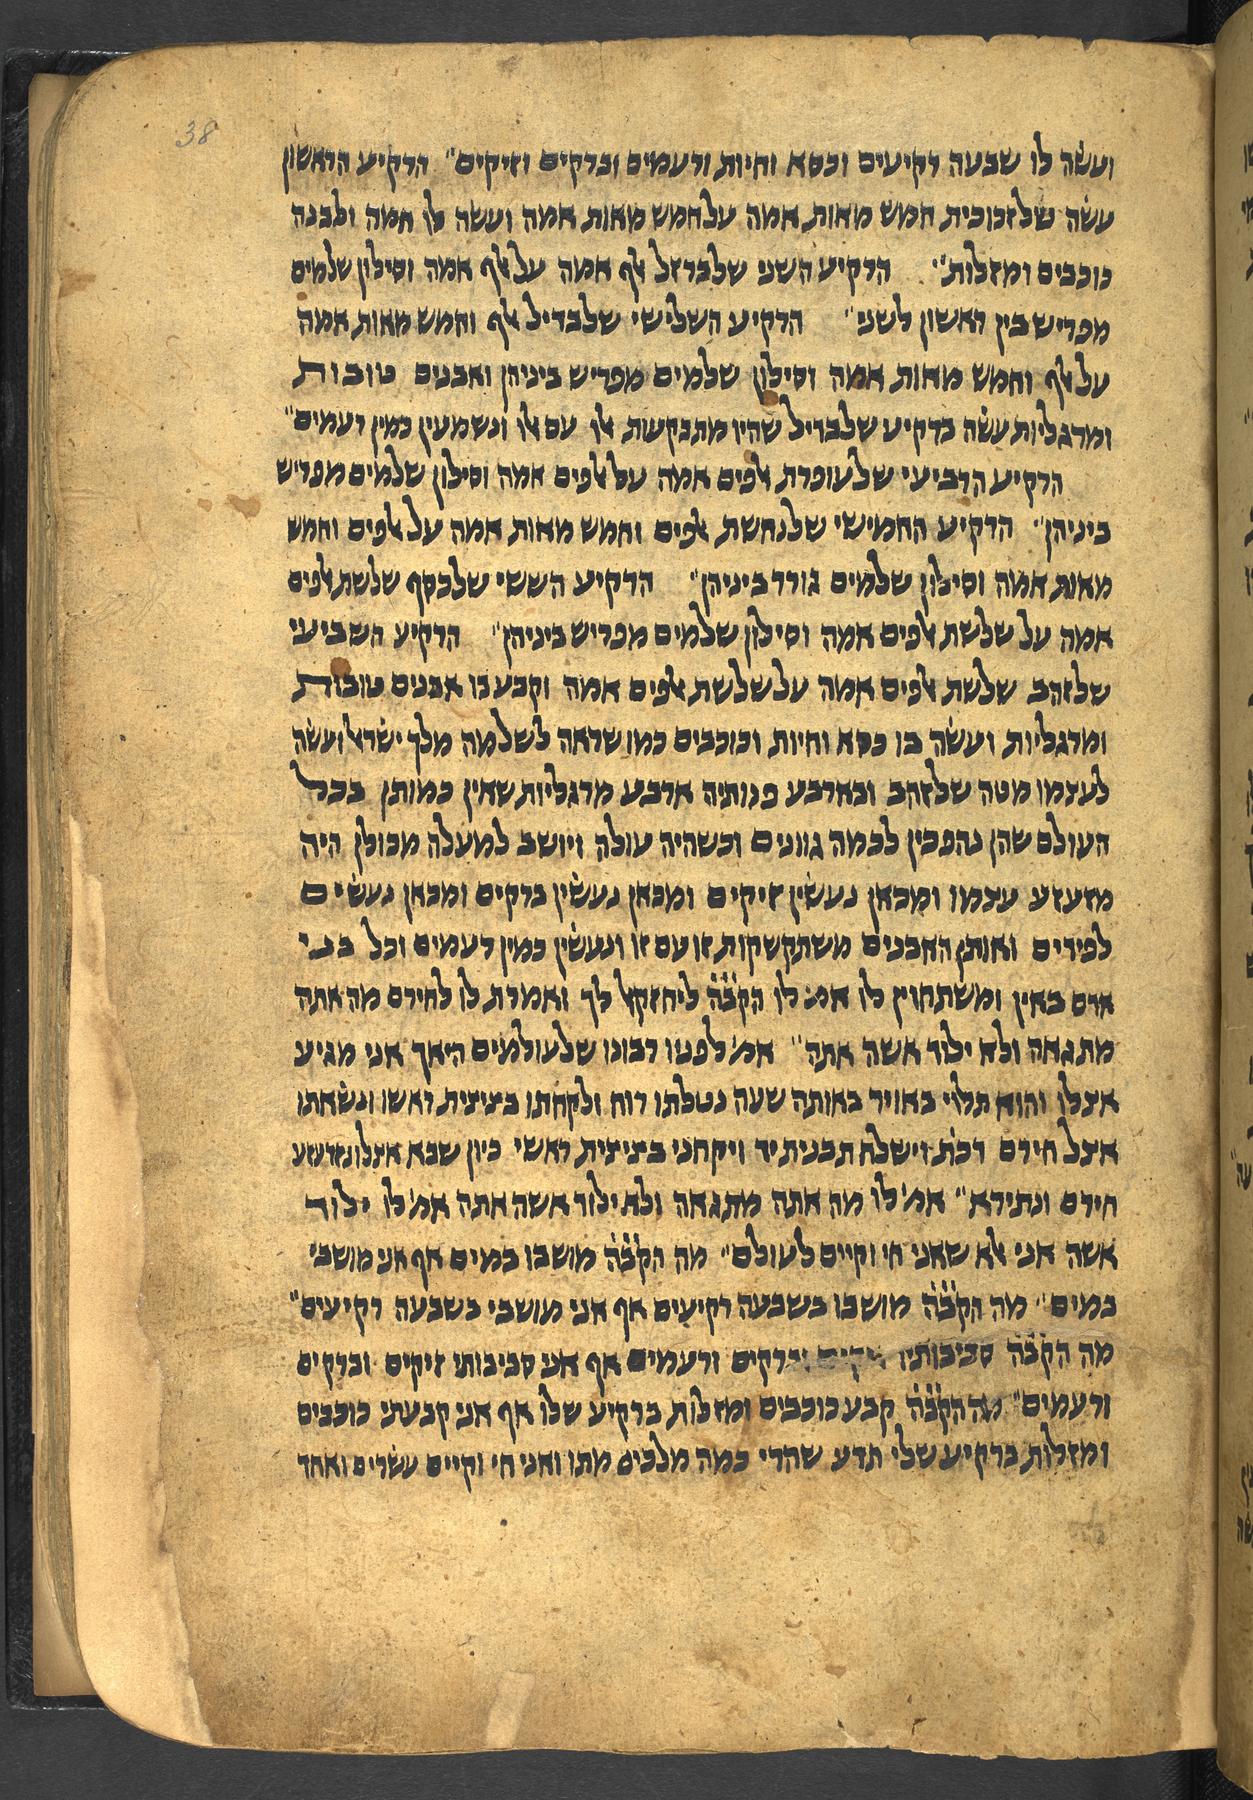 38
ועשה לו שבעה רקיעים וכסא וחיות ורעמים וברקים וזיקים" הרקיע הראשון
עשה שלזכוכית חמש מאות אמה על חמש מאות אמה ועשה לו חמה ולבנה
כוכבים ומזלות" הרקיע השני שלברזל אלף אמה על אלף אמה וסילון שלמים
מפריש בין ראשון לשני" הרקיע השלישי שלבדיל אלף וחמש מאות אמה
על אלף וחמש מאות אמה וסילון שלמים מפריש ביניהן ואבנים טובות
ומרגליות עשה ברקיע שלבדיל שהיו מתבקעות אלו עם אלו ונשמעין כמין רעמים"
הרקיע הרביעי שלעופרת אלפים אמה על אלפים אמה וסילון שלמים מפריש
ביניהן" הרקיע החמישי שלנחשת אלפים וחמש מאות אמה על אלפים וחמש
מאות אמה וסילון שלמים גודר ביניהן" הרקיע הששי שלכסף שלשת אלפים
אמה על שלשת אלפים אמה וסילון שלמים מפריש ביניהן" הרקיע השביעי
שלזהב שלשת אלפים אמה על שלשת אלפים אמה וקבע בו אבנים טובות
ומרגליות ועשה בו כסא וחיות וכוכבים כמו שראה לשלמה מלך ישראל ועשה
לעצמו מטה שלזהב ובארבע פנותיה ארבע מרגליות שאין כמותן בכל
העולם שהן נהפכין לכמה גוונים וכשהיה עולה ויושב למעלה מכולן היה
מזעזע עצמו ומכאן נעשין זיקים ומכאן נעשין ברקים ומכאן נעשים
לפידים ואותן האבנים משתקשקות זו עם זו ונעשין כמין רעמים וכל בני
אדם באין ומשתחוין לו אמ' לו הקב̇ה̇ ליחזקאל לך ואמרת לו לחירם מה אתה
מתגאה ולא ילוד אשה אתה" אמ' לפניו רבונו שלעולמים היאך אני מגיע
אצלו והוא תלוי באויר באותה שעה נטלתו רוח ולקחתו בציצית ראשו ונשאתו
אצל חירם דכת' וישלח תבנית יד ויקחני בציצית ראשי כיון שבא אצלו נזדעזע
חירם ונתירא" אמ' לו מה אתה מתגאה ולא ילוד אשה אתה אמ' לו ילוד
אשה אני אלא שאני חי וקיים לעולם" מה הקב̇ה̇ מושבו במים אף אני מושבי
במים" מה הקב̇ה̇ מושבו בשבעה רקיעים אף אני מושבי בשבעה רקיעים"
מה הקב̇ה̇ סביבותיו זיקים וברקים ורעמים אף אני סביבותי זיקים וברקים
ורעמים" מה הקב̇ה̇ קבע כוכבים ומזלות ברקיע שלו אף אני קבעתי כוכבים
ומזלות ברקיע שלי תדע שהרי כמה מלכים מתו ואני חי וקיים עשרים ואחד